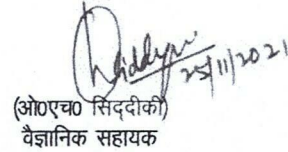 25/11/2021
(ओ0एच0 सिद्दीकी)
वैज्ञानिक सहायक